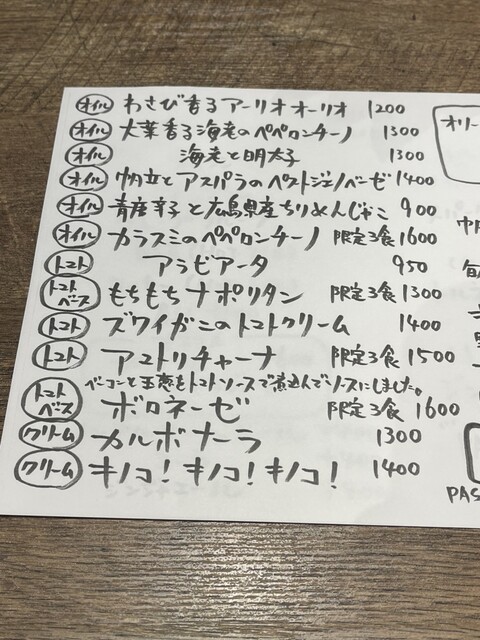 オイル わさび香るアーリオオーリオ 1200
オイル 大葉香る海老のペペロンチーノ 1300
オイル 海老と明太子 1300
オイル 帆立とアスパラのペストジェノベーゼ 1400
オイル 青唐辛子と広島県産ちりめんじゃこ 900
オイル カラスミのペペロンチーノ 限定3食 1600
トマト アラビアータ 950
トマトベース もちもちナポリタン 限定3食 1300
トマト ズワイガニのトマトクリーム 1400
トマト アマトリチャーナ 限定3食 1500
ベーコンと玉葱をトマトソースで煮込んでソースにしました。
トマトベース ボロネーゼ 限定3食 1600
クリーム カルボナーラ 1300
クリーム キノコ!キノコ!キノコ! 1400
オリー
PAS